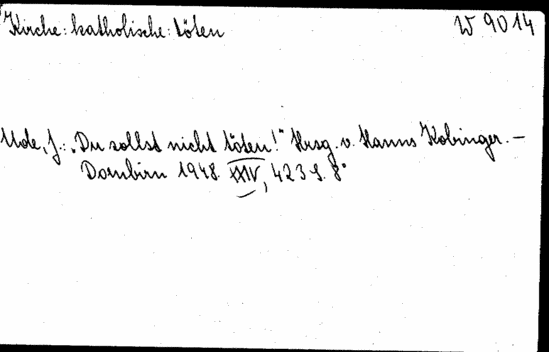 Kirche: katholische: töten
W 9014
Ude, J.: „Du sollst nicht töten!" Hrsg. v. Hanns Kobinger. —
Dornbirn 1948. XXIV, 423 S. 8°